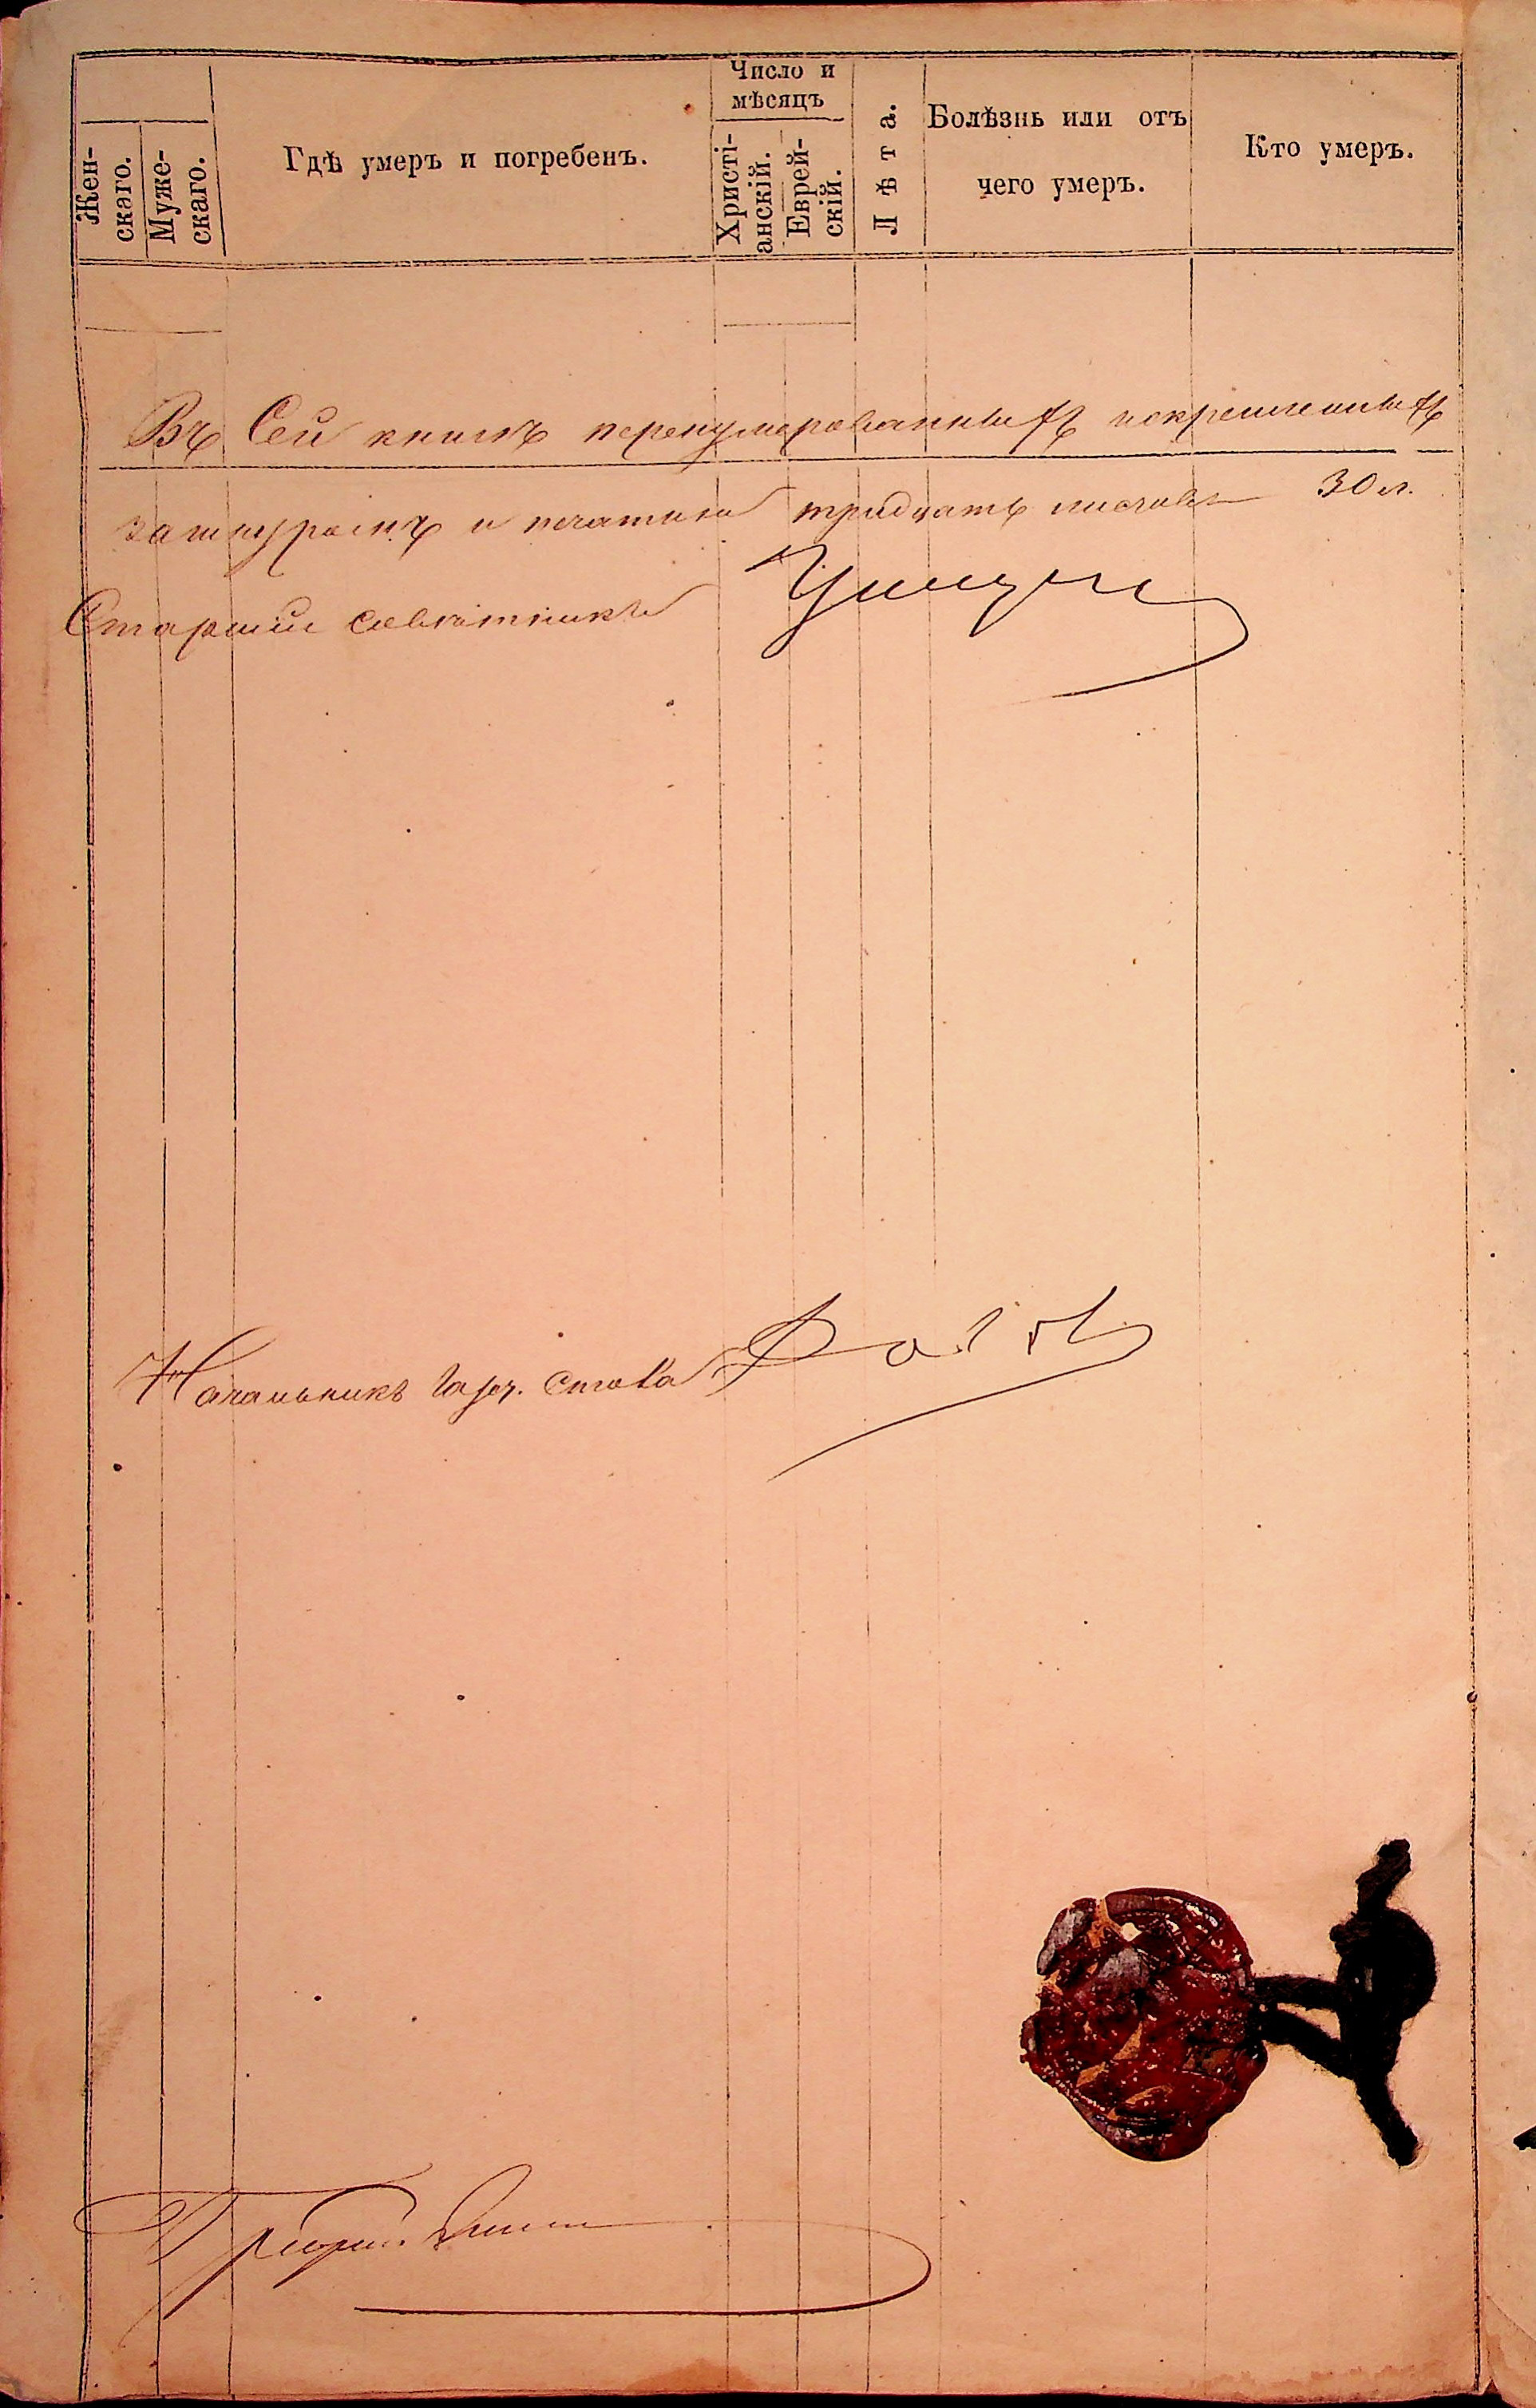 Жен-
скаго.
Муже-
скаго.
Гдѣ умеръ и погребенъ.
Число и
мѣсяцъ
Христі-
анскій.
Еврей-
скій.
Лѣта.
Болѣзнь или отъ
чего умеръ.
Кто умеръ.
Въ Сей книгѣ перенумерованныхъ искрепленныхъ
зашнуромъ и печатью тридцать листовъ 30 л.
Старшій совѣтникъ
Начальникъ стола